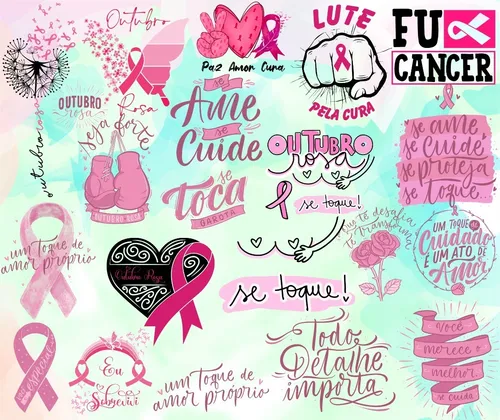 Outubro
Rosa
Paz Amor Cura
LUTE
PELA CURA
FU
CANCER
OUTUBRO
rosa
seja forte
OUTUBRO ROSA
outubro rosa
se
Ame
se
Cuide
se
Toca
GAROTA
OUTUBRO
rosa
se toque!
se ame
se cuide
se proteja
se toque
um toque de
amor próprio
Outubro Rosa
se toque!
te desafia
te transforma
UM TOQUE DE
Cuidado
É UM ATO DE
Amor
Eu
Sobrevivi
um toque de
amor próprio
Todo
Detalhe
importa
você
merece o
melhor
se cuida